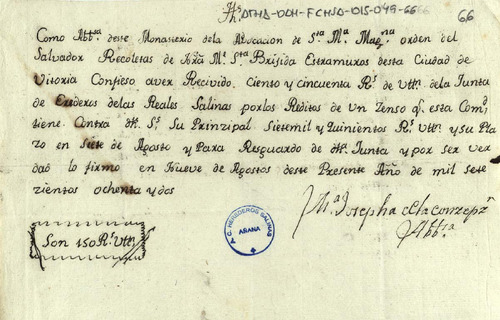 Jhs. AFHA-DDH-FCHSA-015-049-66
66
Como Abb.ra deste Monasterio dela Advocacion de S.ta M.a Mag.na orden del
Salvador Recoletas de M.a S.ta Brijida Extramuros desta Ciudad de
Vitoria Confieso aver Recivido. Ciento y cincuenta R.s de vtt.n dela Junta
de Erederos delas Reales Salinas porlos Reditos de un Zenso q.e esta Com.d
tiene. Contra dh.s S.s Su Prinzipal Sietemil y Quinientos R.s vtt.n y su Pla
zo en Siete de Agosto y Para Resguardo de dh.a Junta y por ser ver
dad lo firmo en Nueve de Agosto deste Presente Año de mil sete
zientos ochenta y dos
M.a Josepha de la Conzepz.n
Abb.ra
Son 150 R.s Vtt.n
C. HEREDEROS SALINAS
AÑANA